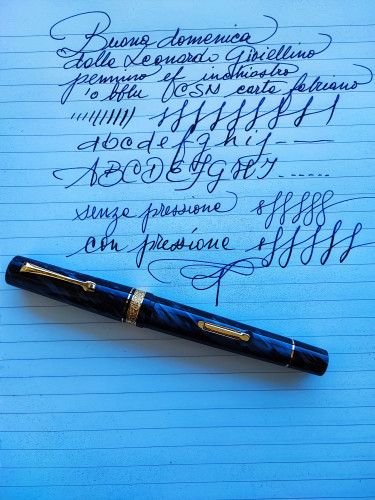 Buona domenica
dalla Leonardo Gioiellino
pennino ef inchiostro
blu CSM carta fabriano
abcdefghij
ABCDEFGHI.....
senza pressione
con pressione